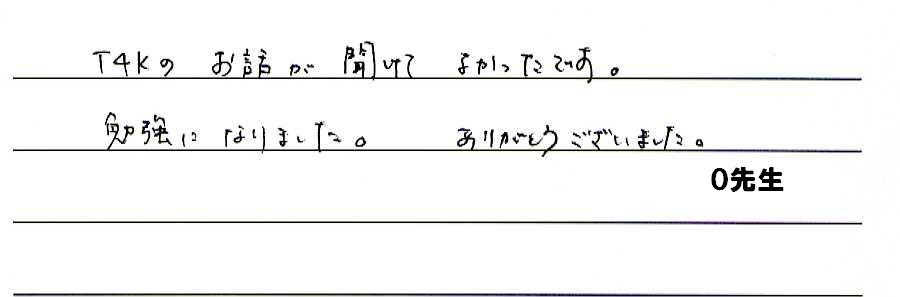 T4Kの お話が 聞けて よかったです。
勉強に なりました。 ありがとうございました。
O先生